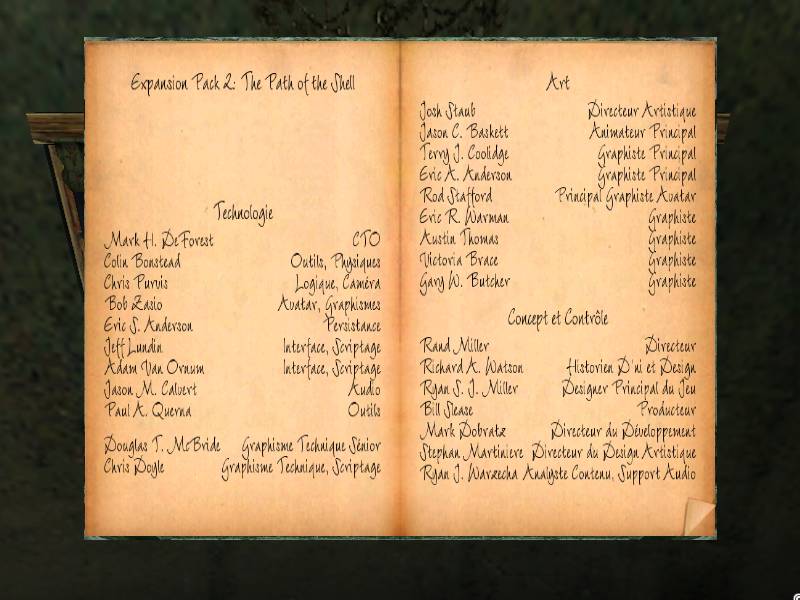 Expansion Pack 2: The Path of the Shell
Technologie
Mark H. DeForest CTO
Colin Bonstead Outils, Physiques
Chris Purvis Logique, Caméra
Bob Zasio Avatar, Graphismes
Eric S. Anderson Persistance
Jeff Lundin Interface, Scriptage
Adam Van Ornum Interface, Scriptage
Jason M. Calvert Audio
Paul A. Querna Outils
Douglas T. McBride Graphisme Technique Sénior
Chris Doyle Graphisme Technique, Scriptage
Art
Josh Staub Directeur Artistique
Jason C. Baskett Animateur Principal
Terry J. Coolidge Graphiste Principal
Eric A. Anderson Graphiste Principal
Rod Stafford Principal Graphiste Avatar
Eric R. Warman Graphiste
Austin Thomas Graphiste
Victoria Brace Graphiste
Gary W. Butcher Graphiste
Concept et Contrôle
Rand Miller Directeur
Richard A. Watson Historien D'ni et Design
Ryan S. J. Miller Designer Principal du Jeu
Bill Slease Producteur
Mark Dobratz Directeur du Développement
Stephan Martiniere Directeur du Design Artistique
Ryan J. Warzecha Analyste Contenu, Support Audio